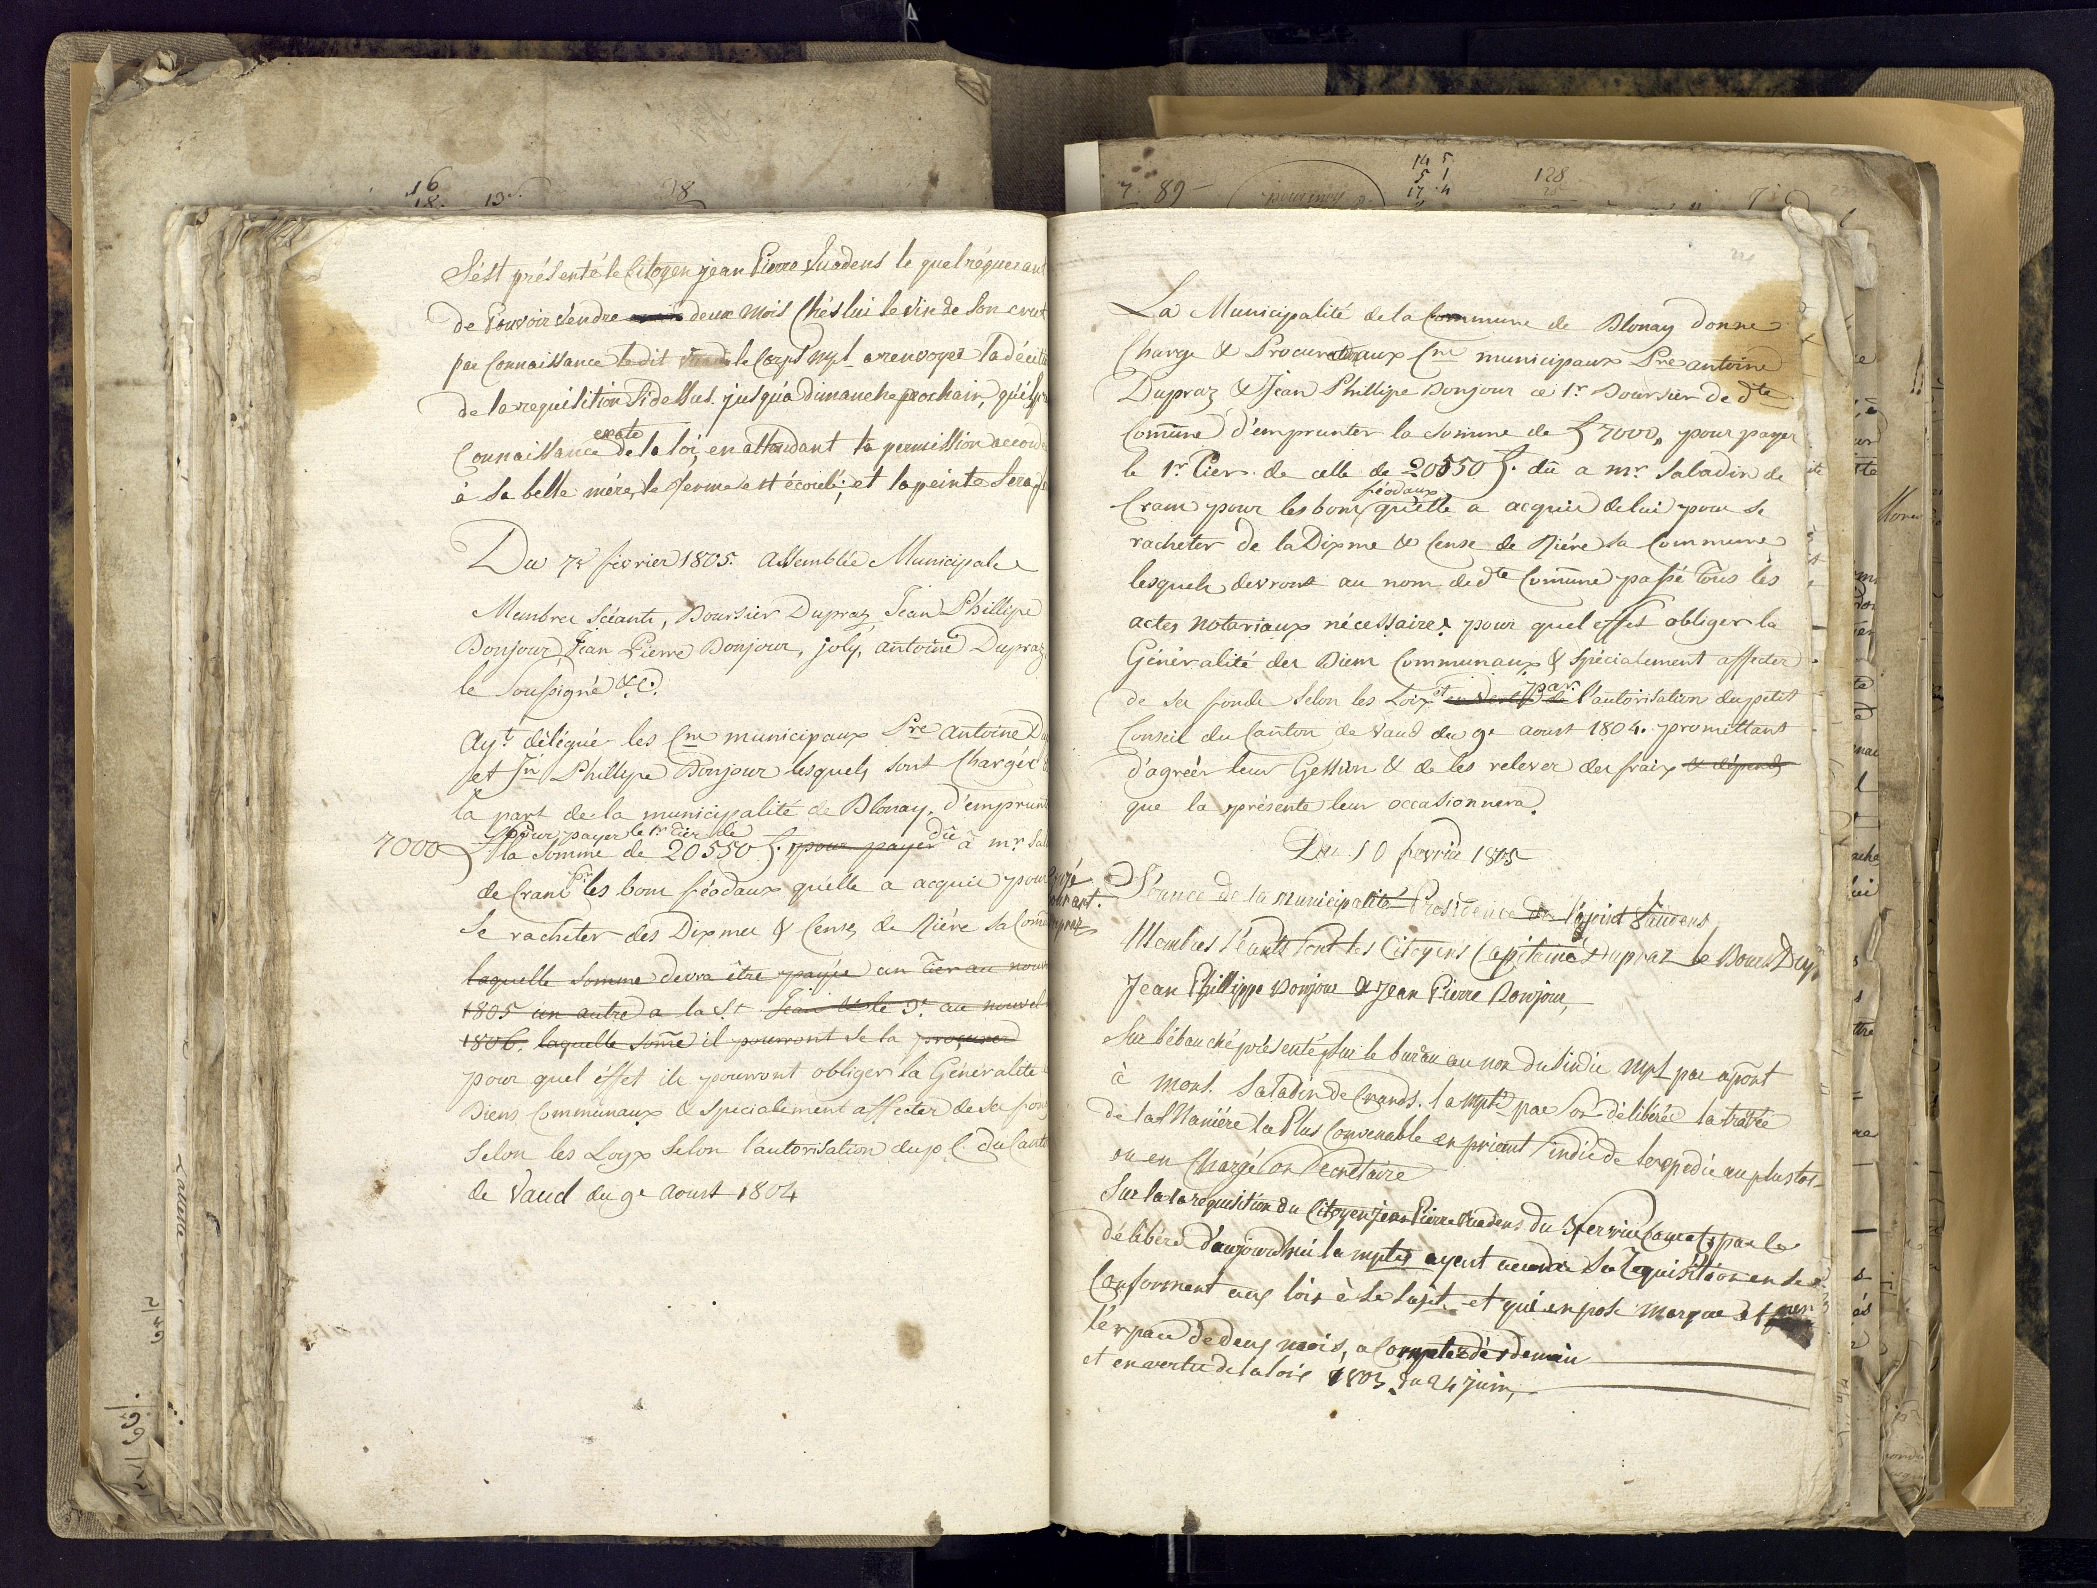 16
18. 13
S'est présenté le Citoyen jean Pierre Vuadens le quel réquerant
de Pouvoir vendre deux mois Chés lui le vin de Son crut
par Connaissance le dit le Corps Mpl a renvoyer la décisi
de la requisition Si dessus jusqu'a dimanche prochain, qu'il
exate
Connaissance de la loi, en attendant la permission accord
à Sa belle mére, le terme est écoulé; et la peinte Sera
Du 7e fevrier 1805. Assemblée Municipale
Membres Séants, Boursier Dupraz Jean Phillipe
Bonjour, Jean Pierre Bonjour, joly, antoine Dupraz
le Soussigné &c.
Ayt délégué les Cns municipaux Pre antoine Du
et Jn Phillipe Bonjour lesquels sont Chargés
la part de la municipalité de Blonay, d'emprunt
pour payer le 1r tier de
7000 la Somme de 20550 £. pour payer dû à mr Sal
de Crans pr les bons féodaux quelle a acquis pour
Se racheter des Dixmes & Censes de Riére sa Com
laquelle Somme devra être payée un tier au nouv
1805 un autre a la St Jean & le 3e au nouvel
1806. laquelle Some il pourront se la procurer
pour quel éffet ils pourront obliger la Généralité
Biens Communaux & Spécialement affecter de Ses fon
Selon les Loyx Selon l'autorisation du p. C du Cant
de Vaud du 9e Aoust 1804
14 5
5 1
17 4
7 89
128
La Municipalité de la Commune de Blonay donne
Charge & Procuration aux Cns municipaux Pre antoine
Dupraz & Jean Phillipe Bonjour ce 1r Boursier de dte
Comune d'emprunter la Somme de £ 7000, pour payer
le 1r Tier de celle de 20550 £. dû a mr Saladin de
féodaux
Crans pour les bons quelle a acquis de lui pour se
racheter de la Dixme & Cense de Riére sa Commune
lesquels devront au nom de dte Comune passé Tous les
actes notariaux nécessaires pour quel effet obliger la
Généralité des Biens Communaux & Spécialement affecter
de Ses fonds Selon les Loix et par l'autorisation du petit
Conseil du Canton de Vaud du 9e aoust 1804. promettant
d'agréer leur Gestion & de les relever des fraix & dépends
que la présente leur occasionnera.
Du 10 fevrier 1805
Séance de la Municipalité Présidence de l'ajoint Vuadens
Membres Séants Sont les Citoyens Capitaine Dupraz le Bours Dup
Jean Phillippe Bonjour & Jean Pierre Bonjour,
Sur l'ébauche présentés Sur le bureau au non du Sindic Mpl par aport
à Mons. Saladin de Crands. la Mpte par Son délibéré la traitée
de la Maniére la Plus Convenable en priant Sindic de lexpedie au plustot
ou en Chargé Son Secretaire
Sur la la requisition du Citoyen jean Pierre Vuadens du 3 fervrié Courat, par le
délibéré d'aujourdhui la mplté ayent acordé Sa Requisition en se
Conforment aux loix à Se Sujet et qui en pose marque et
l'espace de deux mois, a Compter dés demain
et en vertu de la loix 1803 du 24 juin,